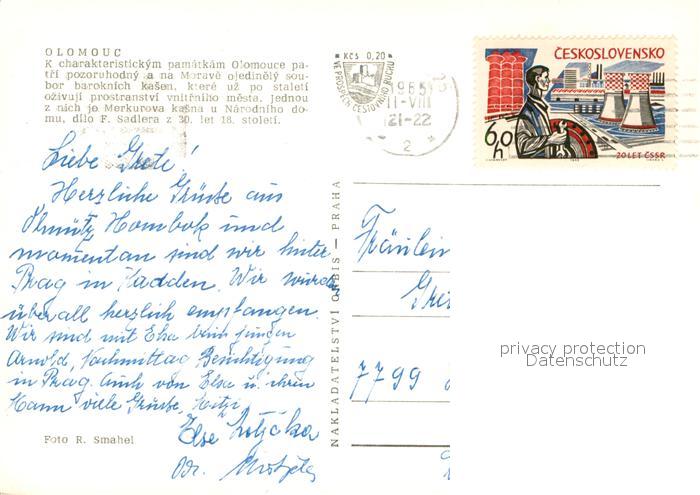 OLOMOUC
K charakteristickým památkám Olomouce pa-
tří pozoruhodný a na Moravě ojedinělý sou-
bor barokních kašen, které už po staletí
oživují prostranství vnitřního města. Jednou
z nich je Merkurova kašna u Národního do-
mu, dílo F. Sadlera z 30. let 18. století.
Liebe Grete!
Herzliche Grüße aus
Olmütz Hombok und
momentan sind wir hinter
Prag in Wir wurden
überall herzlich empfangen.
Wir sind mit Elsa beim jungen
Arnold, Nachmittag Besichtigung
in Prag. Auch von Elsa u. ihren
Mann viele Grüße,
Else
Foto R. Smahel
NAKLADATELSTVÍ ORBIS — PRAHA
KČS 0,20
CESTOVNÍHO RUCHU
1965
11-VIII
21-22
2
ČESKOSLOVENSKO
60 h
20 LET ČSSR
Fräulein
7799
privacy protection
Datenschutz